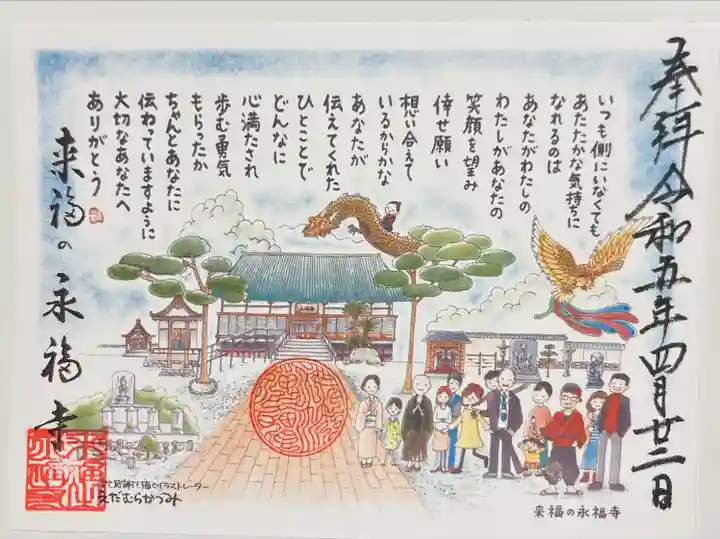 奉拝 令和五年四月廿二日
いつも側にいなくても
あたたかな気持ちに
なれるのは
あなたがわたしの
わたしがあなたの
笑顔を望み
倖せ願い
想い合えて
いるからかな
あなたが
伝えてくれた
ひとことで
どんなに
心満たされ
歩む勇気
もらったか
ちゃんとあなたに
伝わっていますように
大切なあなたへ
ありがとう
来福の永福寺
イラストレーター
えだむらかつみ
来福の永福寺